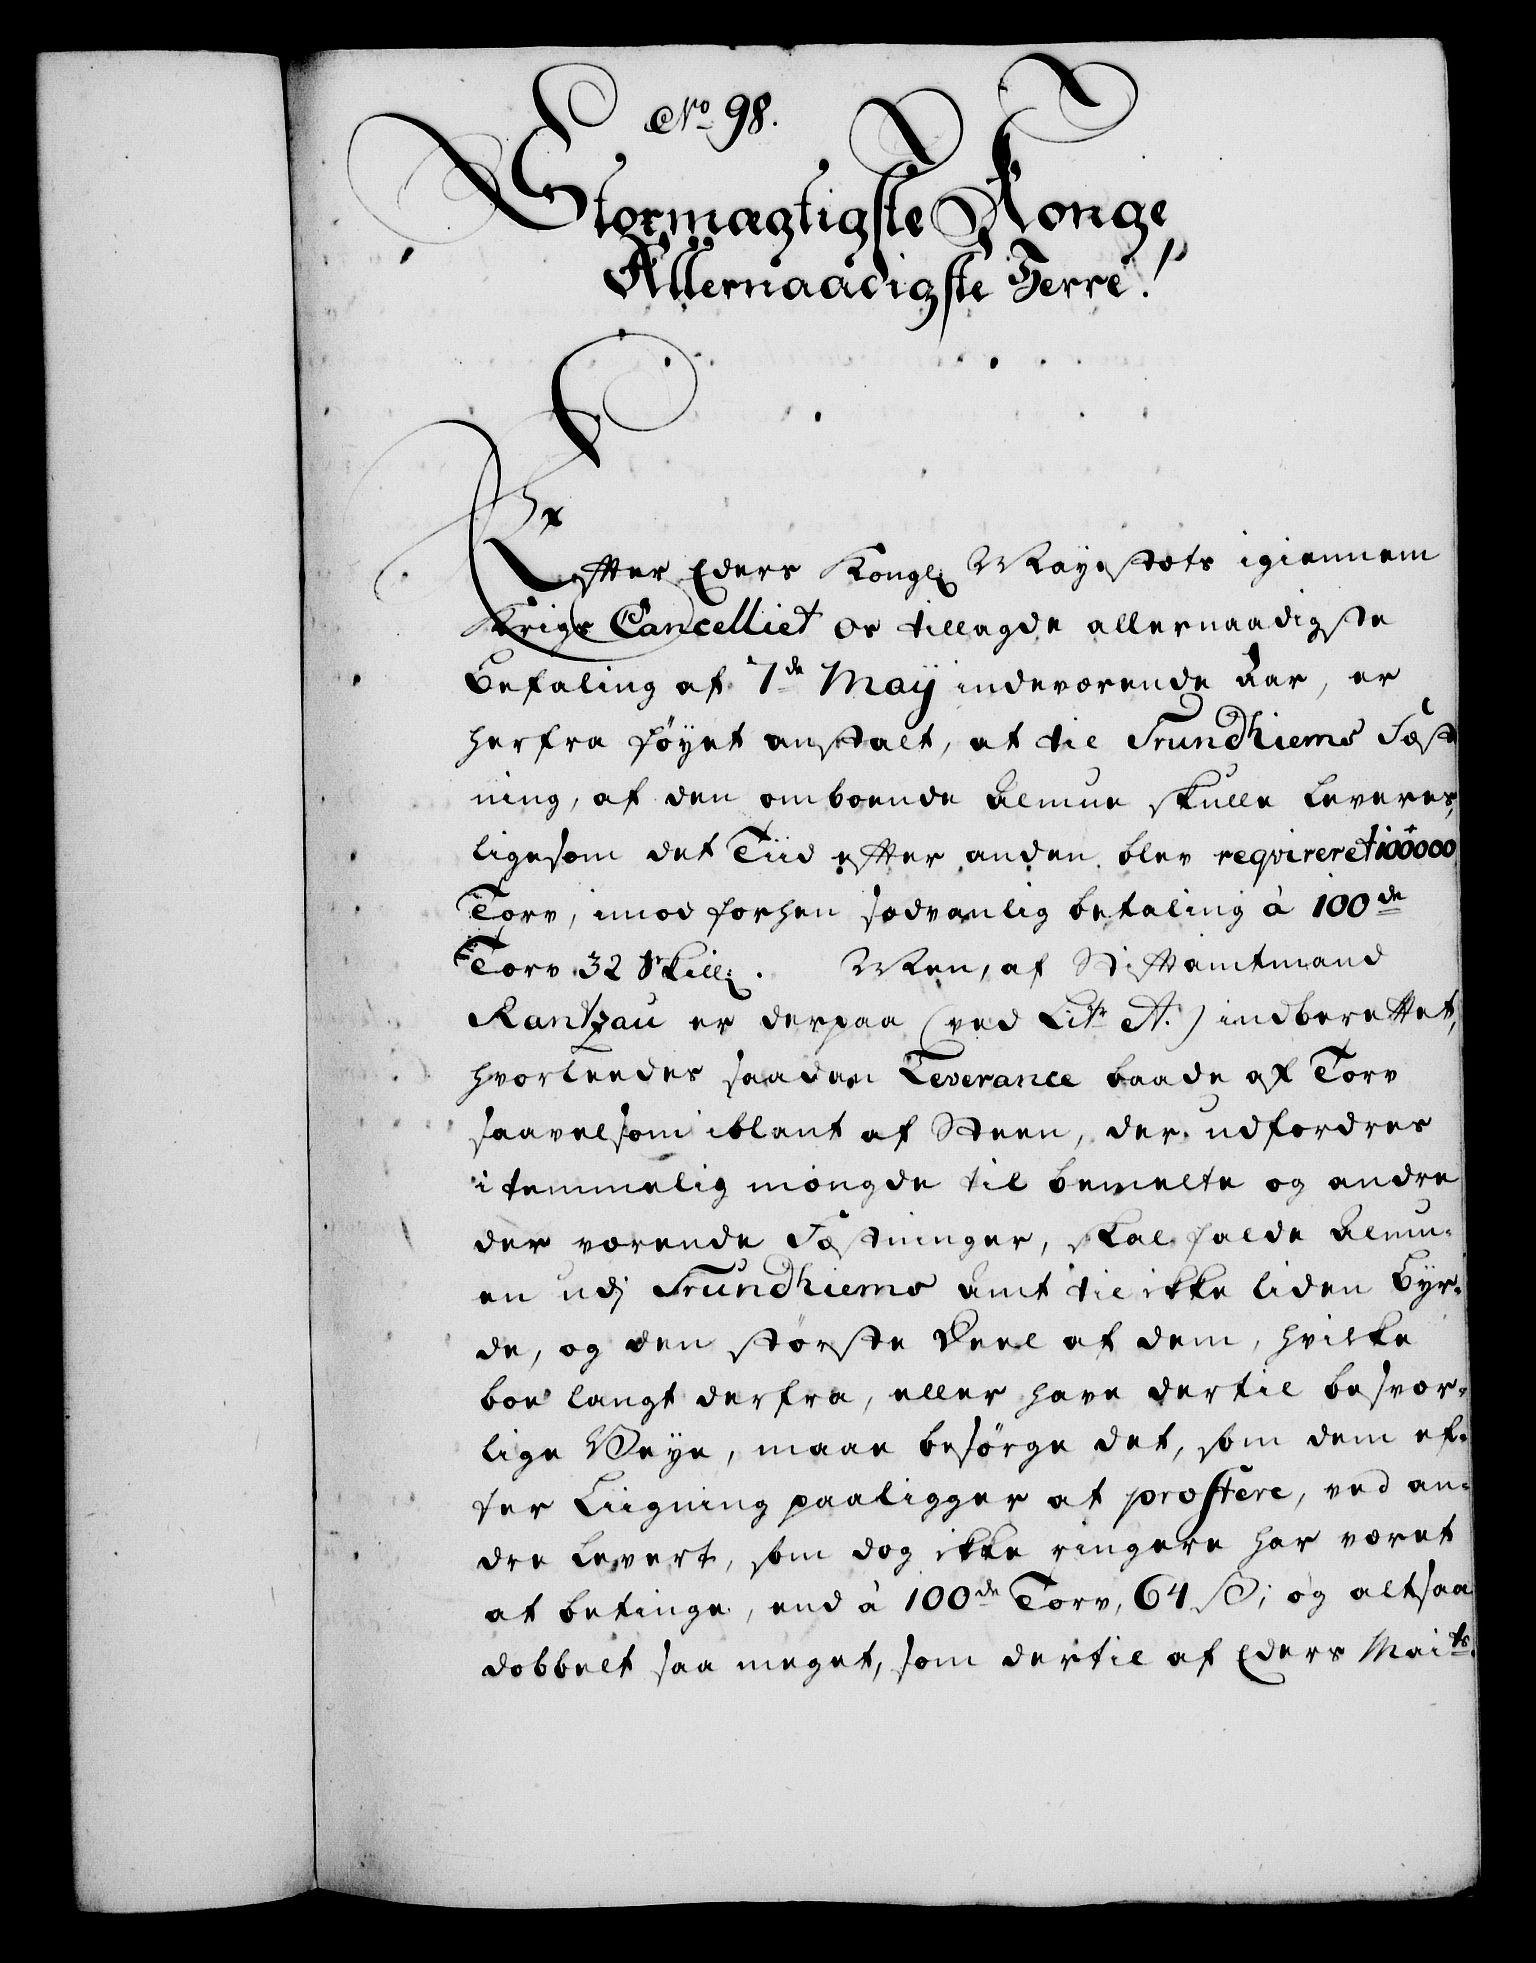 No 98.
Stormægtigste Konge
Allernaadigste Herre!
Efter Eders Kongl: Mayestets igiennem
Krigs Cancelliet os tillagde allernaadigste
Befaling af 7de Maÿ indeværende Aar, er
herfra föyet anstalt, at til Trundhiems Fæst
ning, af den omboende Almue skulle leveres,
ligesom det Tiid efter anden blev reqvireret 100000
Torv, imod forhen sædvanlig betaling à 100de
Torv 32 Skill: . Men, af Stiftamtmand
Rantzau er derpaa (ved Litr A.) indberettet,
hvorleedes saadan Leverance baade af Torv
saavelsom iblant af Steen, der udfordres
i temmelig mængde til bemelte og andre
der værende Fæstninger, skal falde Almu-
en udj Trundhiems Amt til ikke liden Byr-
de, og den störste Deel af dem, hvilke
boe langt derfra, eller have dertil besvær-
lige Veye, maae besörge det, som dem ef-
ter Liigning paaligger at præstere, ved an-
dre levert, som dog ikke ringere har været
at betinge, end à 100de Torv, 64 ß; og altsaa
dobbelt saa meget, som dertil af Eders Maits